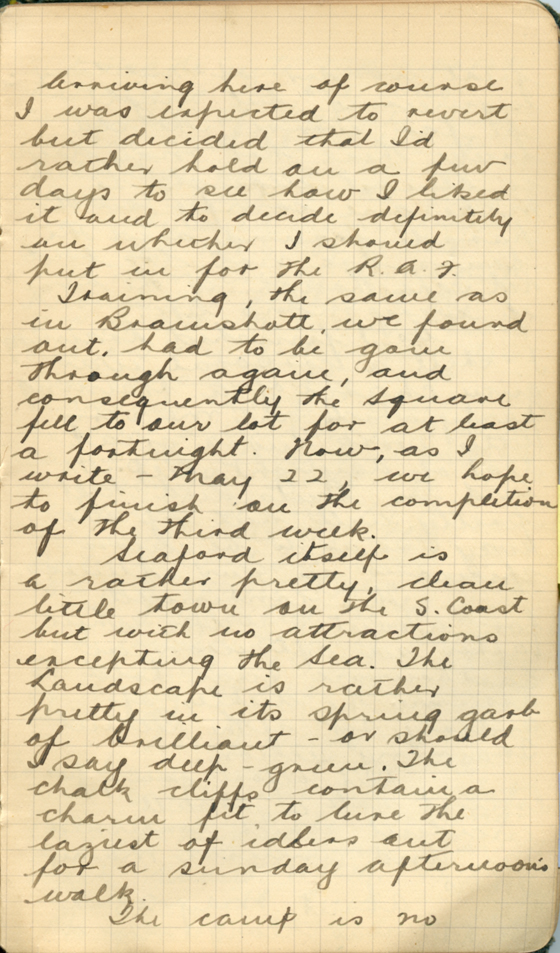 Arriving here of course
I was expected to revert
but decided that I'd
rather hold on a few
days to see how I liked
it and to decide definitely
on whether I should
put in for the R.A.F.
Training, the same as
in Bramshott, we found
out, had to be gone
through again, and
consequently the Square
fell to our lot for at least
a fortnight. Now, as I
write - May 22, we hope
to finish on the completion
of the third week.
Seaford itself is
a rather pretty, clean
little town on the S. Coast
but with no attractions
excepting the Sea. The
Landscape is rather
pretty in its spring garb
of brilliant - or should
I say deep - green. The
chalk cliffs contain a
charm fit to lure the
laziest of idlers out
for a sunday afternoon's
walk.
The camp is no